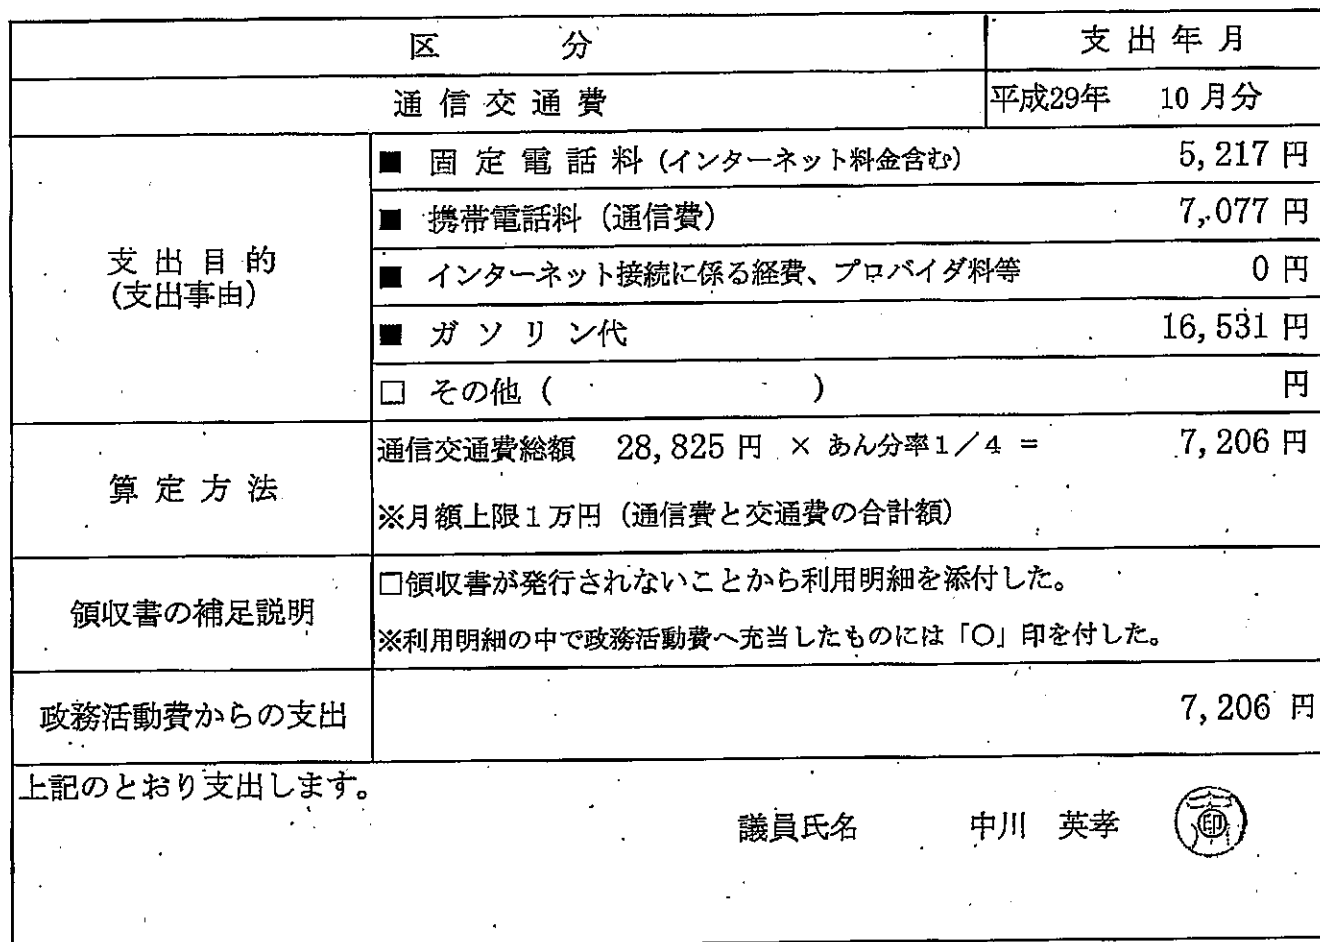 区 分 支出年月
通信交通費 平成29年 10月分
支出目的
(支出事由)
■ 固定電話料 (インターネット料金含む) 5,217 円
■ 携帯電話料 (通信費) 7,077 円
■ インターネット接続に係る経費、プロバイダ料等 0 円
■ ガソリン代 16,531 円
□ その他 ( ) 円
算定方法
通信交通費総額 28,825 円 × あん分率1/4 = 7,206 円
※月額上限1万円 (通信費と交通費の合計額)
領収書の補足説明
□領収書が発行されないことから利用明細を添付した。
※利用明細の中で政務活動費へ充当したものには「〇」印を付した。
政務活動費からの支出 7,206 円
上記のとおり支出します。
議員氏名 中川 英孝 印